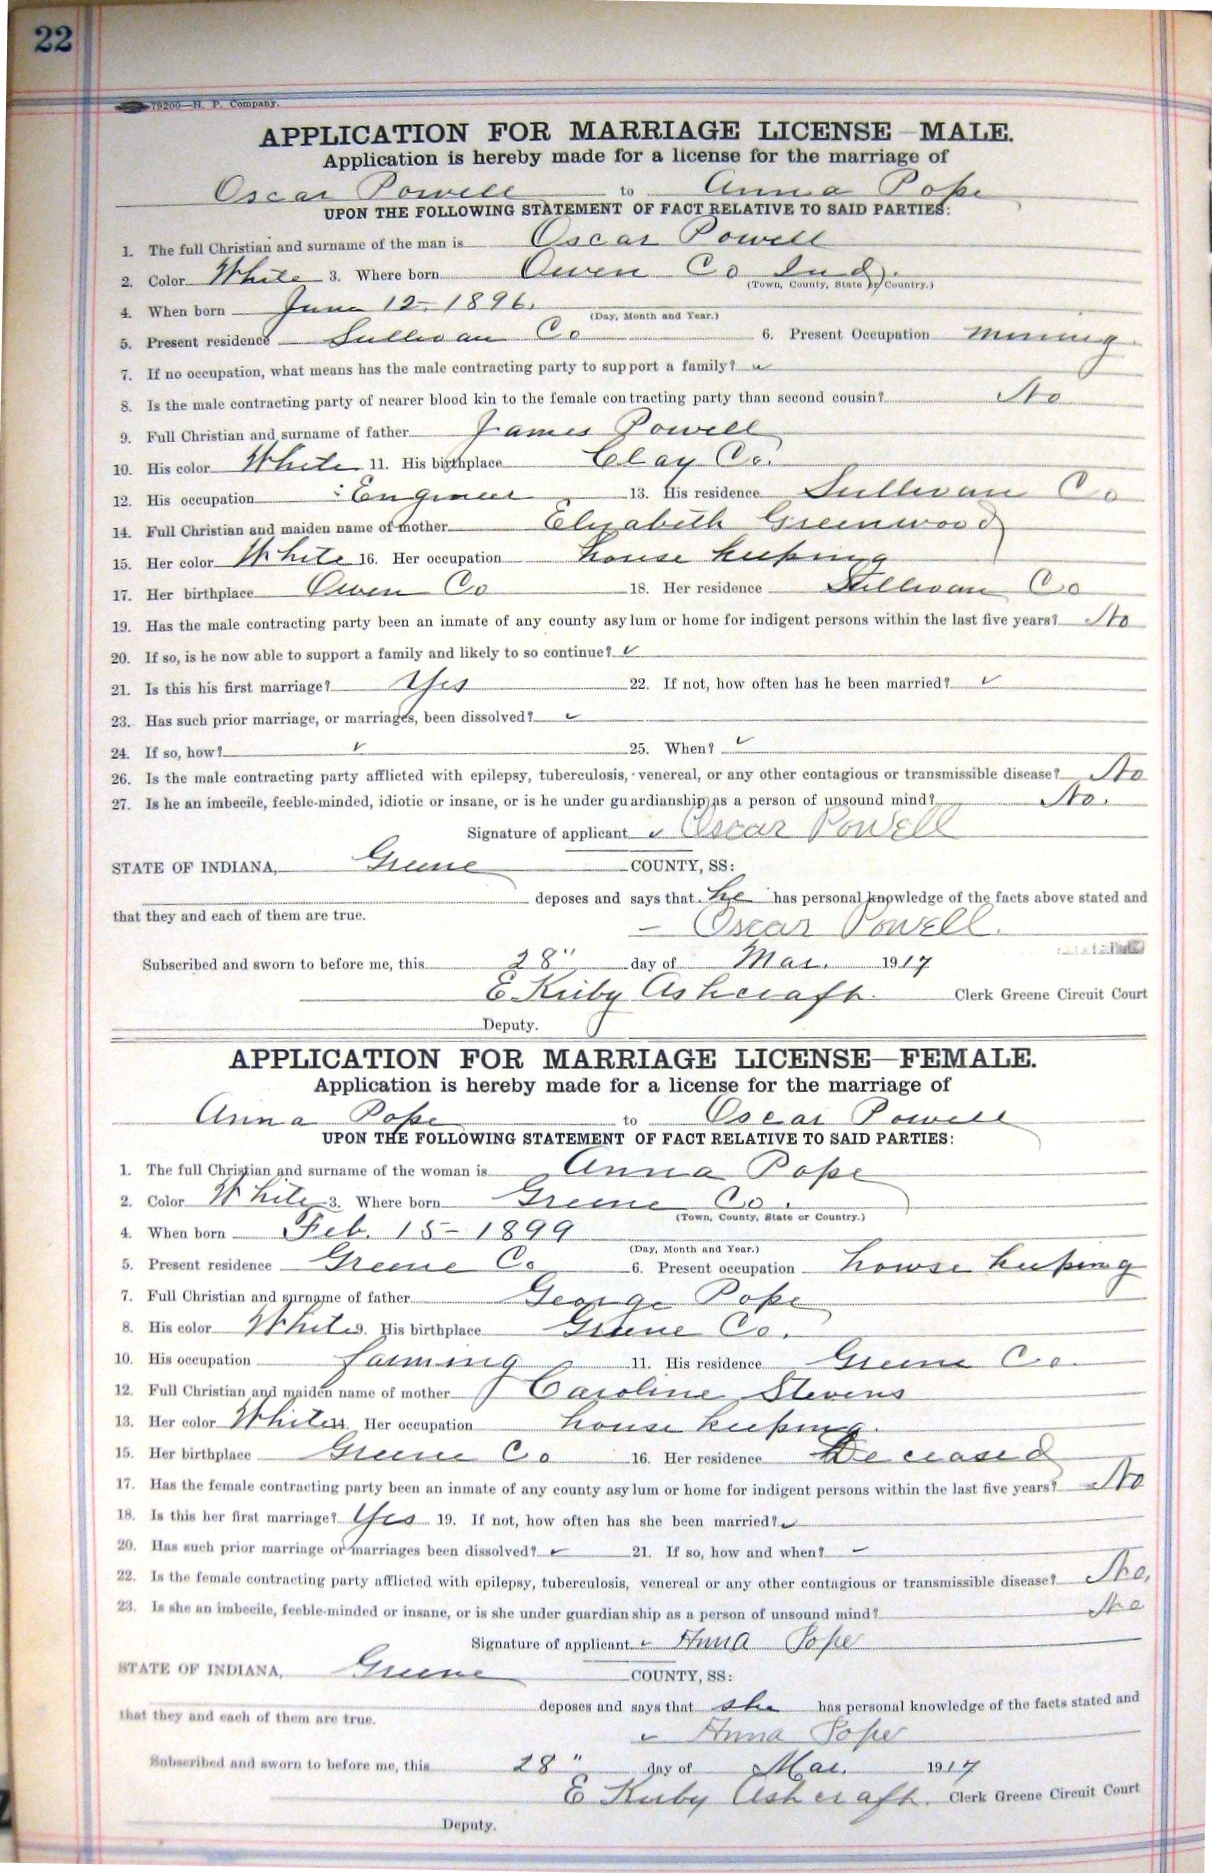 22
79200—H. P. Company.
APPLICATION FOR MARRIAGE LICENSE—MALE.
Application is hereby made for a license for the marriage of
Oscar Powell to Anna Pope
UPON THE FOLLOWING STATEMENT OF FACT RELATIVE TO SAID PARTIES:
1. The full Christian and surname of the man is Oscar Powell
2. Color White 3. Where born Owen Co Ind.
(Town, County, State or Country.)
4. When born June 12- 1896.
(Day, Month and Year.)
5. Present residence Sullivan Co 6. Present Occupation mining
7. If no occupation, what means has the male contracting party to support a family? ✓
8. Is the male contracting party of nearer blood kin to the female contracting party than second cousin? No
9. Full Christian and surname of father James Powell
10. His color White 11. His birthplace Clay Co.
12. His occupation Engineer 13. His residence Sullivan Co
14. Full Christian and maiden name of mother Elizabeth Greenwood
15. Her color White 16. Her occupation house keeping
17. Her birthplace Owen Co 18. Her residence Sullivan Co
19. Has the male contracting party been an inmate of any county asylum or home for indigent persons within the last five years? No
20. If so, is he now able to support a family and likely to so continue? ✓
21. Is this his first marriage? Yes 22. If not, how often has he been married? ✓
23. Has such prior marriage, or marriages, been dissolved? ✓
24. If so, how? ✓ 25. When? ✓
26. Is the male contracting party afflicted with epilepsy, tuberculosis, venereal, or any other contagious or transmissible disease? No
27. Is he an imbecile, feeble-minded, idiotic or insane, or is he under guardianship as a person of unsound mind? No.
Signature of applicant ✓ Oscar Powell
STATE OF INDIANA, Greene COUNTY, SS:
deposes and says that he has personal knowledge of the facts above stated and
that they and each of them are true.
– Oscar Powell.
Subscribed and sworn to before me, this 28" day of Mar. 1917
E Kirby Ashcraft. Clerk Greene Circuit Court
Deputy.
APPLICATION FOR MARRIAGE LICENSE—FEMALE.
Application is hereby made for a license for the marriage of
Anna Pope to Oscar Powell
UPON THE FOLLOWING STATEMENT OF FACT RELATIVE TO SAID PARTIES:
1. The full Christian and surname of the woman is Anna Pope
2. Color White 3. Where born Greene Co.
(Town, County, State or Country.)
4. When born Feb. 15- 1899
(Day, Month and Year.)
5. Present residence Greene Co 6. Present occupation house keeping
7. Full Christian and surname of father George Pope
8. His color White 9. His birthplace Greene Co.
10. His occupation farming 11. His residence Greene Co.
12. Full Christian and maiden name of mother Caroline Stevens
13. Her color White 14. Her occupation house keeping.
15. Her birthplace Greene Co 16. Her residence Deceased
17. Has the female contracting party been an inmate of any county asylum or home for indigent persons within the last five years? No
18. Is this her first marriage? Yes 19. If not, how often has she been married? ✓
20. Has such prior marriage or marriages been dissolved? ✓ 21. If so, how and when? ✓
22. Is the female contracting party afflicted with epilepsy, tuberculosis, venereal or any other contagious or transmissible disease? No,
23. Is she an imbecile, feeble-minded or insane, or is she under guardianship as a person of unsound mind? No
Signature of applicant ✓ Anna Pope
STATE OF INDIANA, Greene COUNTY, SS:
deposes and says that she has personal knowledge of the facts stated and
that they and each of them are true.
✓ Anna Pope
Subscribed and sworn to before me, this 28" day of Mar. 1917
E Kirby Ashcraft. Clerk Greene Circuit Court
Deputy.